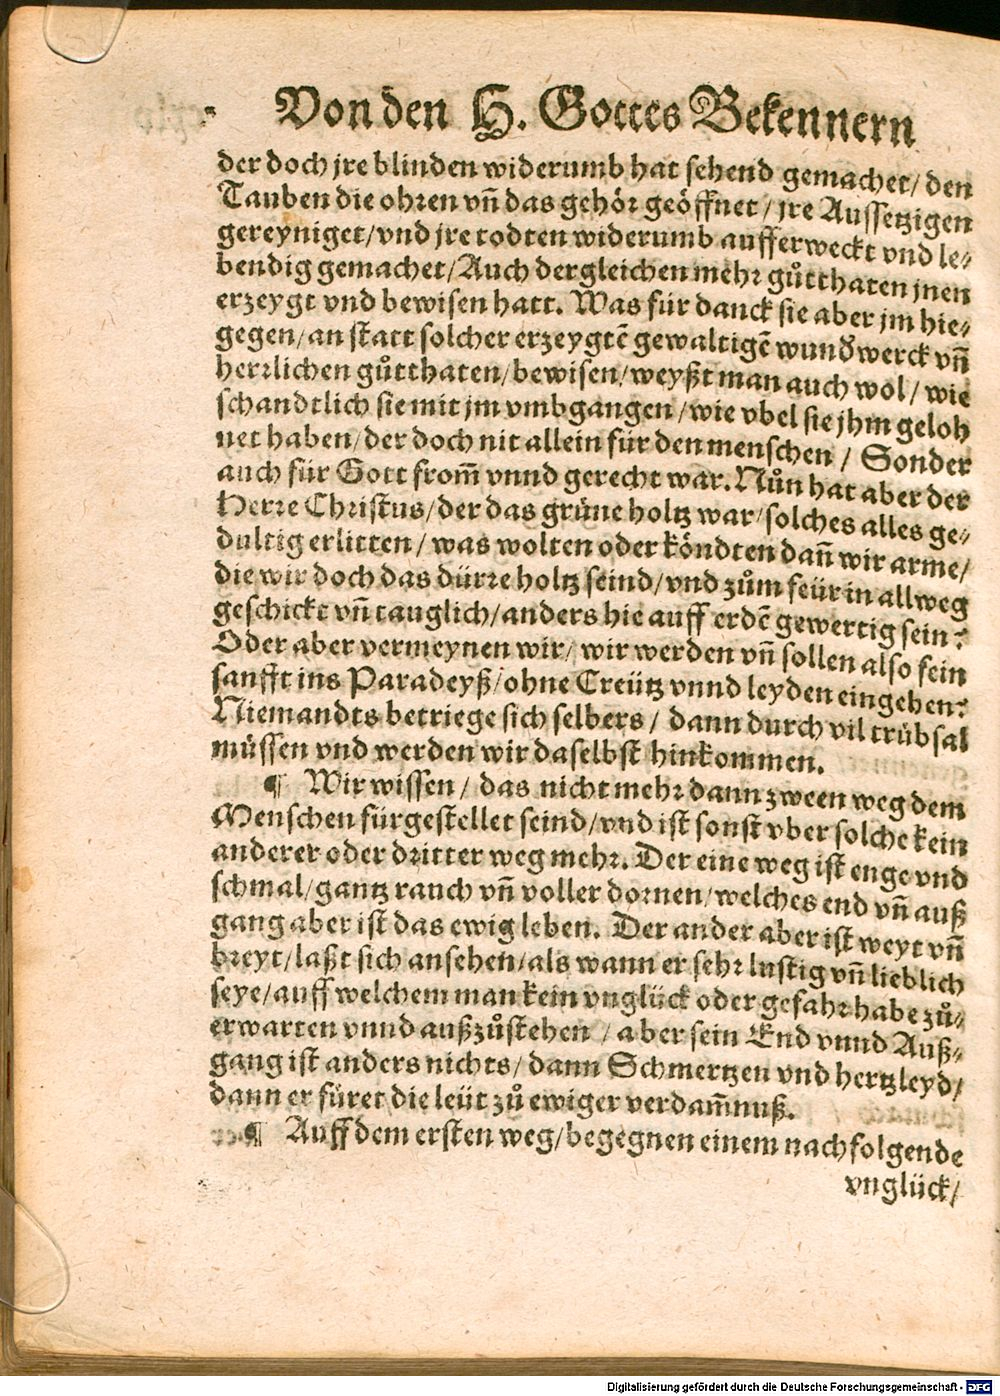 Von den H. Gottes Bekennern
der doch jre blinden widerumb hat sehend gemachet / den
Tauben die ohren vñ das gehör geöffnet / jre Aussetzigen
gereyniget / vnd jre todten widerumb aufferweckt vnd le-
bendig gemachet / Auch dergleichen mehr gůtthaten jnen
erzeygt vnd bewisen hatt. Was für danck sie aber jm hie-
gegen / an statt solcher erzeygtē gewaltigē wunderwerck vñ
herrlichen gůtthaten / bewisen / weyßt man auch wol / wie
schandtlich sie mit jm vmbgangen / wie vbel sie jhm geloh
net haben / der doch nit allein für den menschen / Sonder
auch für Gott from̃ vnnd gerecht war. Nůn hat aber der
Herre Christus / der das grüne holtz war / solches alles ge-
dultig erlitten / was wolten oder köndten dañ wir arme /
die wir doch das dürre holtz seind / vnd zům feür in allweg
geschickt vñ tauglich / anders hie auff erdē gewertig sein?
Oder aber vermeynen wir / wir werden vñ sollen also fein
sanfft ins Paradeyß / ohne Creütz vnnd leyden eingehen?
Niemandts betriege sich selbers / dann durch vil trübsal
müssen vnd werden wir daselbst hinkommen.
¶ Wir wissen / das nicht mehr dann zween weg dem
Menschen fürgestellet seind / vnd ist sonst vber solche kein
anderer oder dritter weg mehr. Der eine weg ist enge vnd
schmal / gantz rauch vñ voller dornen / welches end vñ auß
gang aber ist das ewig leben. Der ander aber ist weyt vñ
breyt / laßt sich ansehen / als wann er sehr lustig vñ lieblich
seye / auff welchem man kein vnglück oder gefahr habe zů-
erwarten vnnd außzůstehen / aber sein End vnnd Auß-
gang ist anders nichts / dann Schmertzen vnd hertzleyd /
dann er füret die leüt zů ewiger verdam̃nuß.
¶ Auff dem ersten weg / begegnen einem nachfolgende
vnglück /
Digitalisierung gefördert durch die Deutsche Forschungsgemeinschaft - DFG